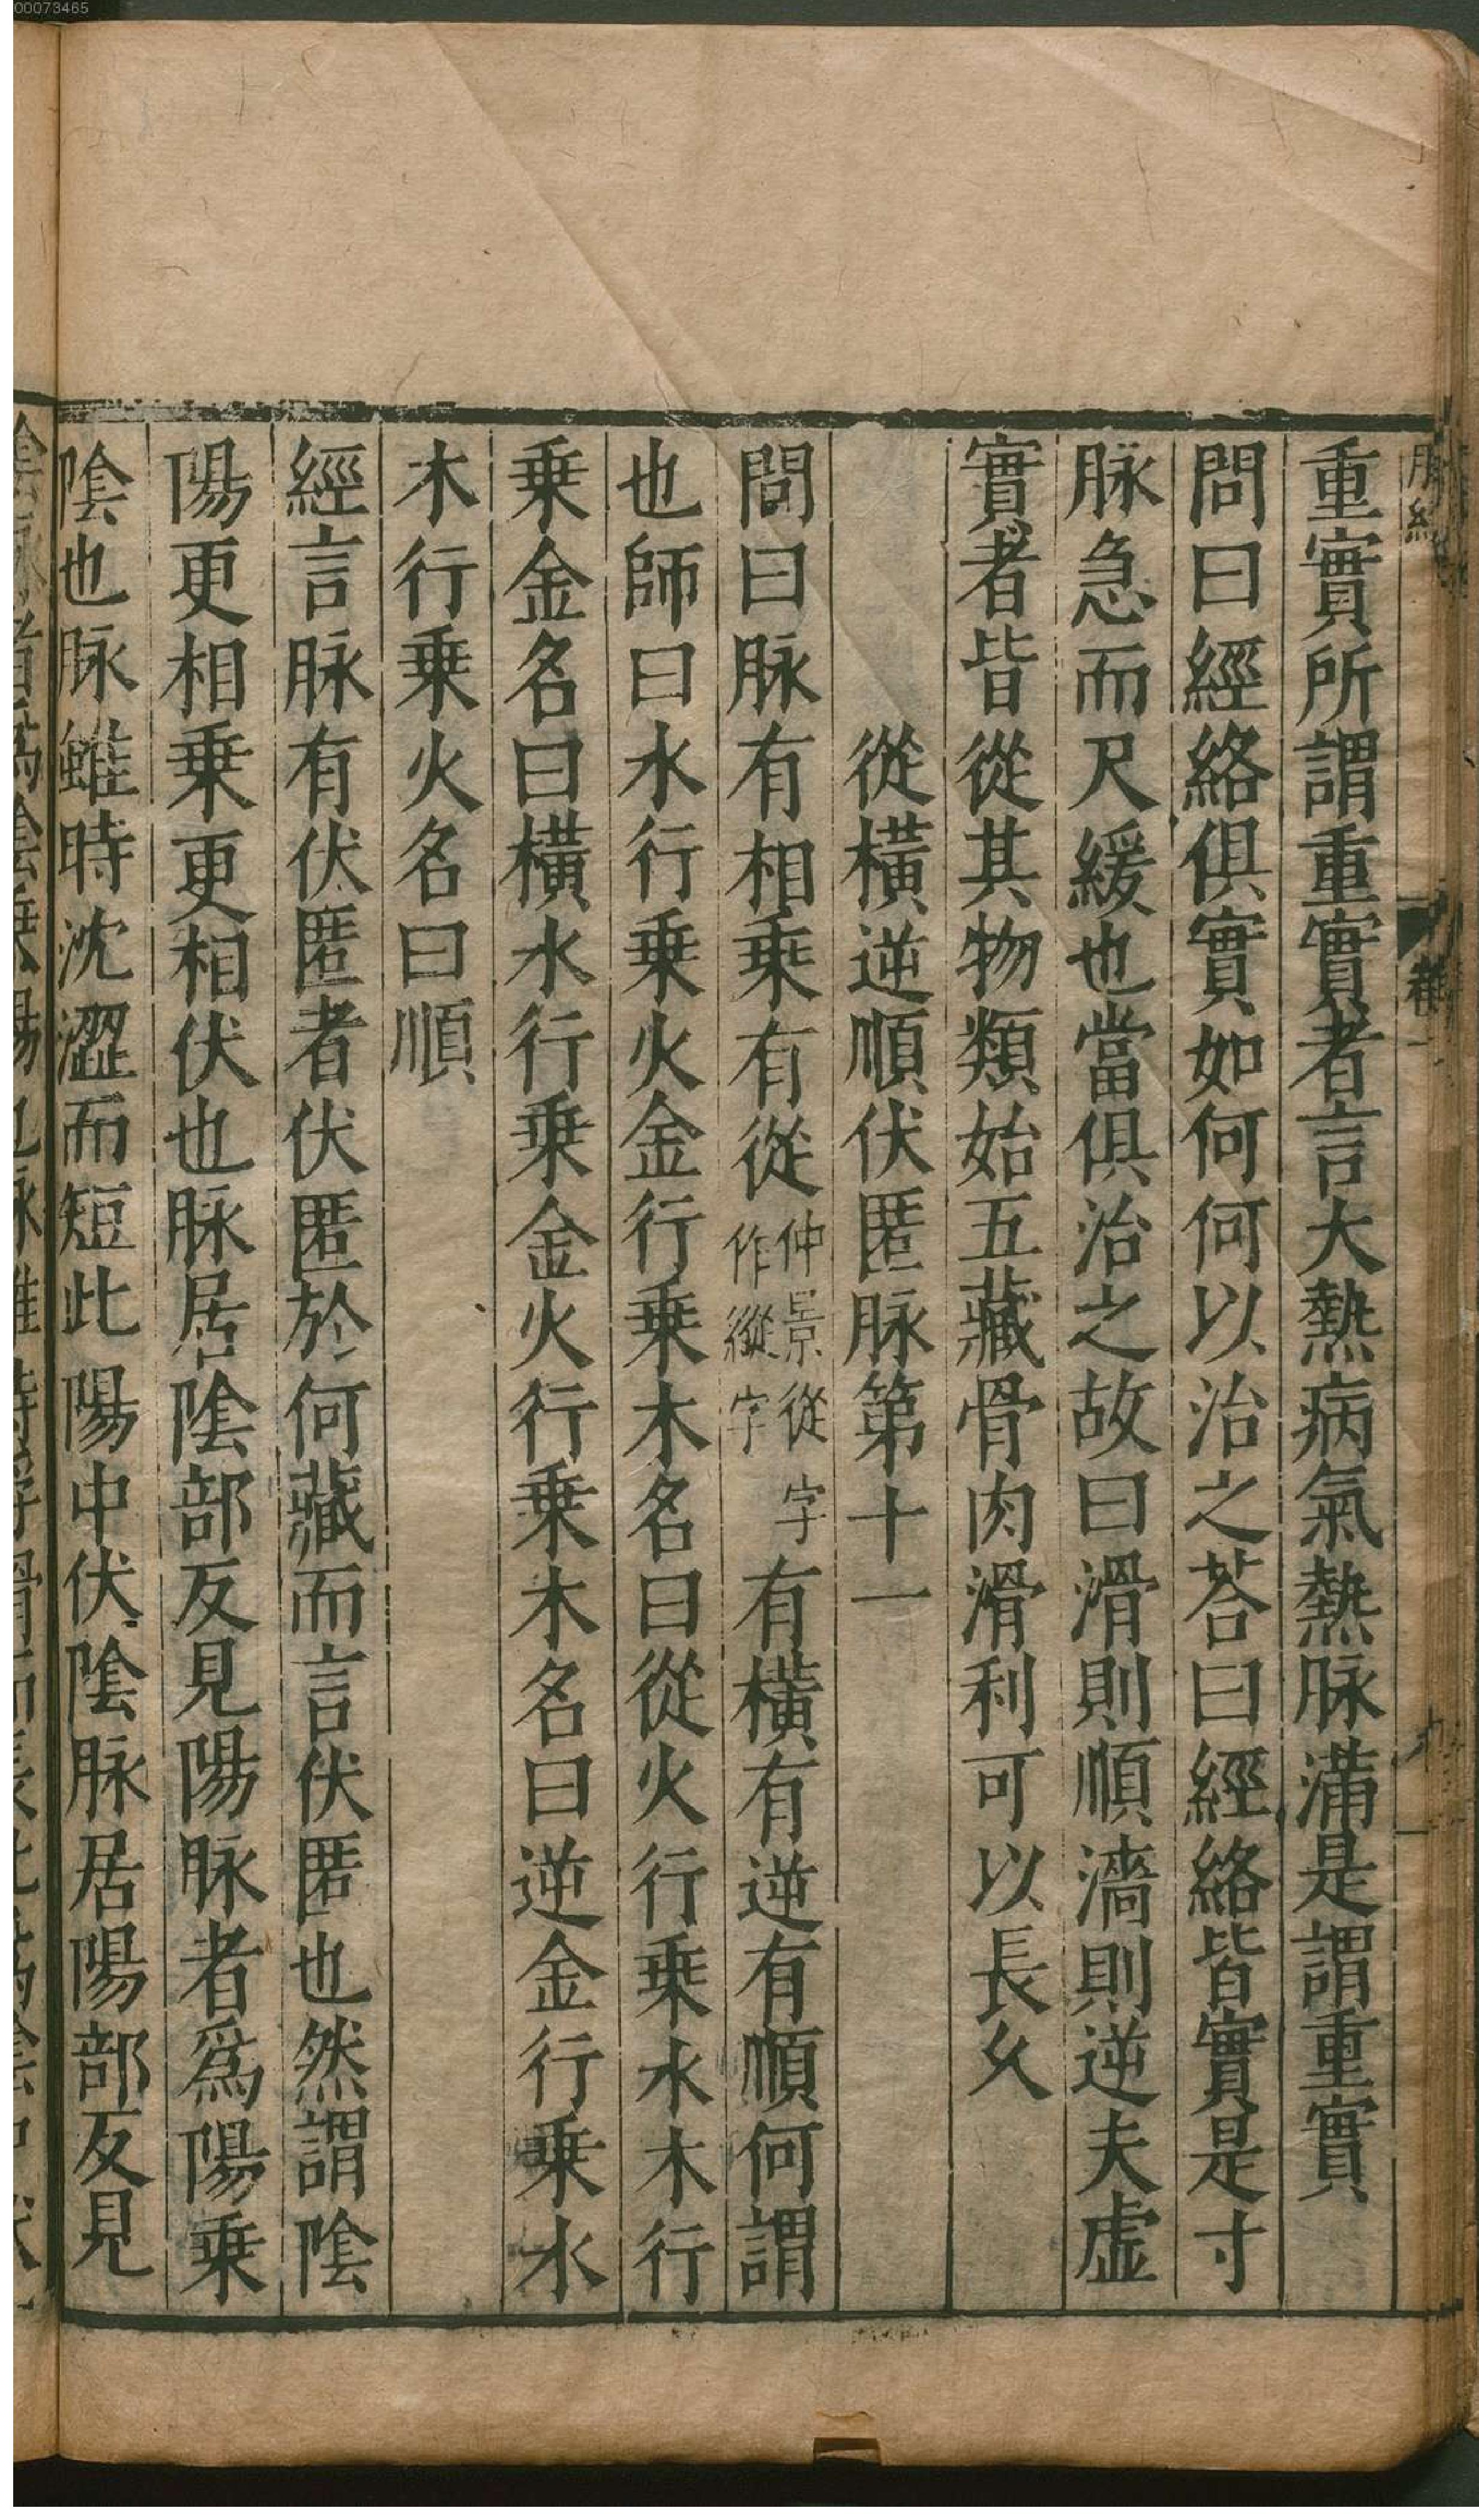 00073465
脉經
卷一
重實所謂重實者言大熱病氣熱脉滿是謂重實
問曰經絡俱實如何何以治之荅曰經絡皆實是寸
脉急而尺緩也當俱治之故曰滑則順濇則逆夫虛
實者皆從其物類始五藏骨肉滑利可以長乆
從橫逆順伏匿脉第十一
問曰脉有相乗有從仲景從字作縱字有橫有逆有順何謂
也師曰水行乗火金行乗木名曰從火行乗水木行
乗金名曰橫水行乗金火行乗木名曰逆金行乗水
木行乗火名曰順
經言脉有伏匿者伏匿於何藏而言伏匿也然謂隂
陽更相乗更相伏也脉居隂部反見陽脉者爲陽乗
隂也脉雖時沈澀而短此陽中伏隂脉居陽部反見